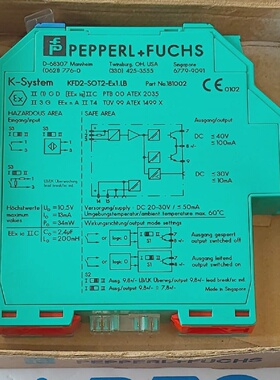 PEPPERL+FUCHS
D-68307 Mannheim Twinsburg, OH, USA Singapore
(0)628 776-0 (330) 425-3555 6779-9091
K-System KFD2-SOT2-Ex1.LB Part No.181002
PTB 00 ATEX 2035
TÜV 99 ATEX 1499 X
CE 0102
HAZARDOUS AREA SAFE AREA
Eingang/input Ausgang/output
DC ≤40V
≤100mA
DC ≤30V
≤10mA
Höchstwerte
maximum
values
10,5V
13mA
34mW
2,4µF
200mH
Versorgung/supply: DC 20-30V / ≤50mA
Umgebungstemperatur/ambient temperature max. 60°C
Wirkungsrichtung/output mode settings
S1
logic 0
Ausgang gesperrt
output switched off
S1
logic 1
Ausgang leitend
output switched on
S2
Made in Singapore